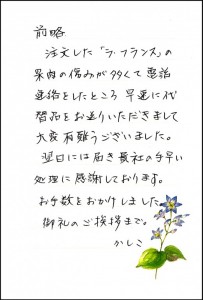 前略
注文した「ラ・フランス」の
果肉の傷みが多くて電話
連絡をしたところ早速に代
替品をお送りいただきまして
大変有難うございました。
翌日には届き貴社の手早い
処理に感謝しております。
お手数をおかけしました
御礼のご挨拶まで。
かしこ